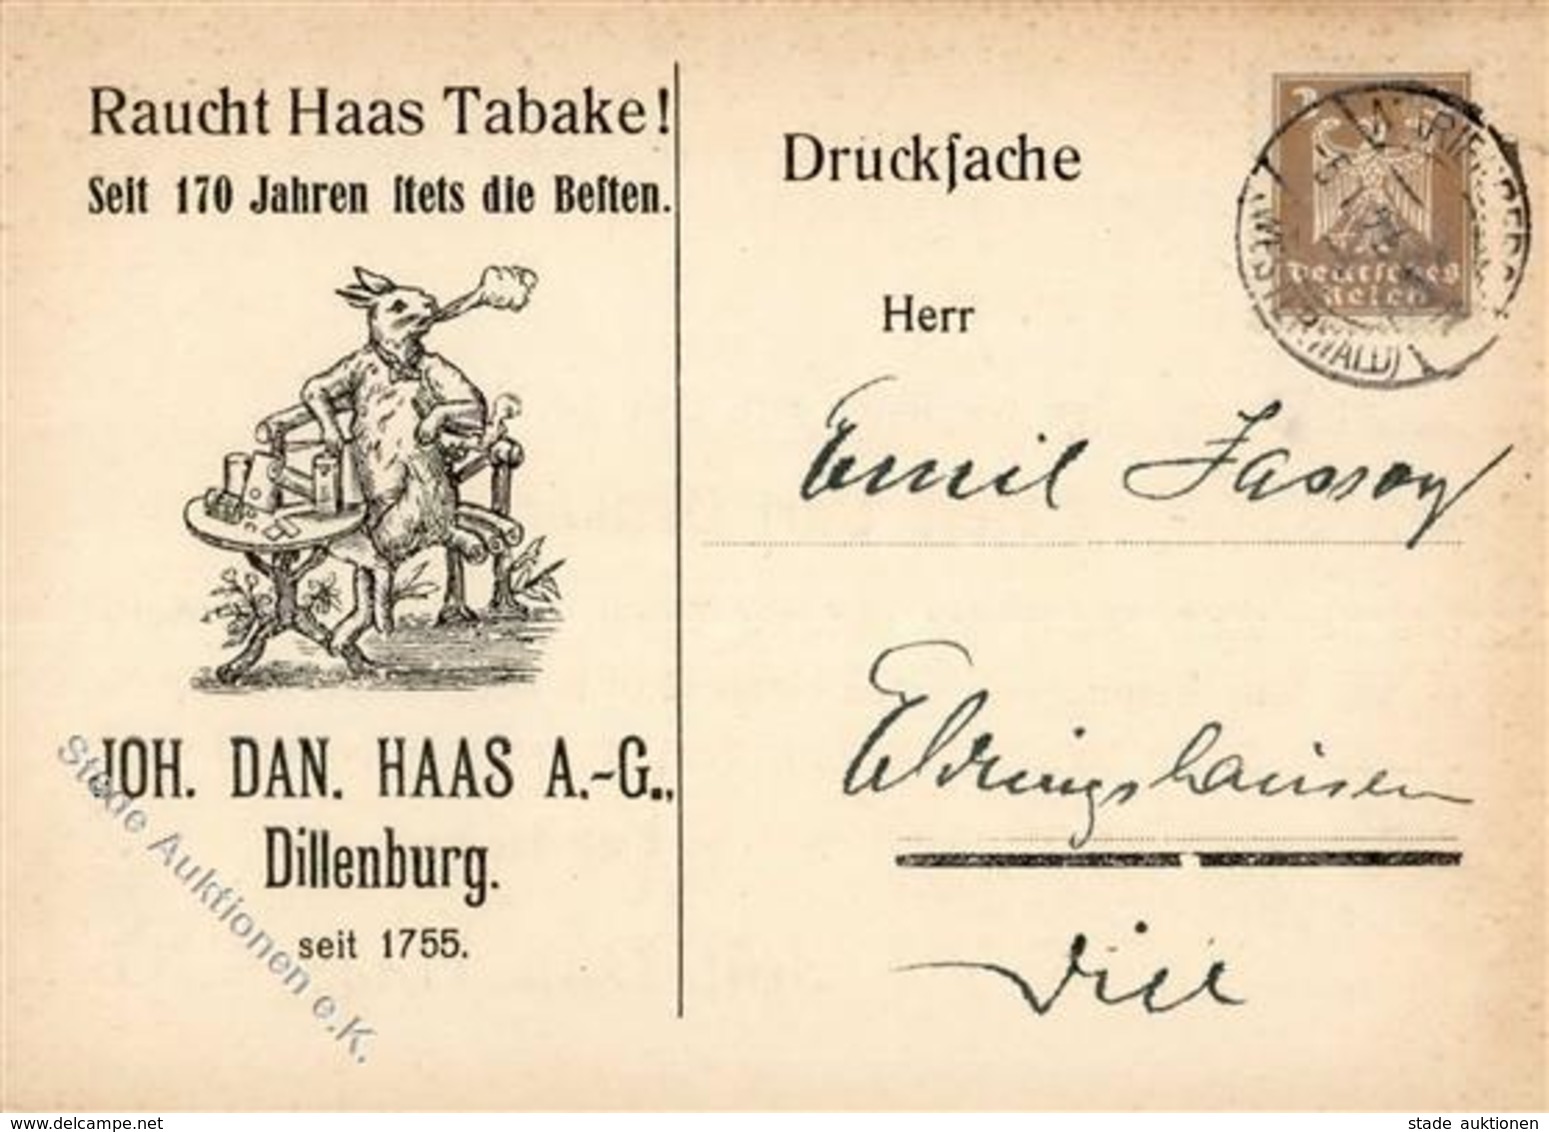 Raucht Haas Tabake!
Seit 170 Jahren ſtets die Beſten.
JOH. DAN. HAAS A.-G.,
Dillenburg.
seit 1755.
Druckſache
Herr
Emil Jassoy
Edringshausen
Dill
3
MARIENBERG
(WESTERWALD)
Deutsches
Reich
Stade Auktionen e.K.
www.delcampe.net
stade auktionen